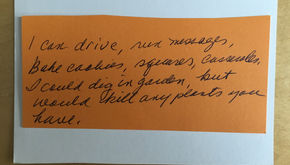 I can drive, run messages,
Bake cookies, squares, casseroles,
I could dig in garden, but
would kill any plants you
have.